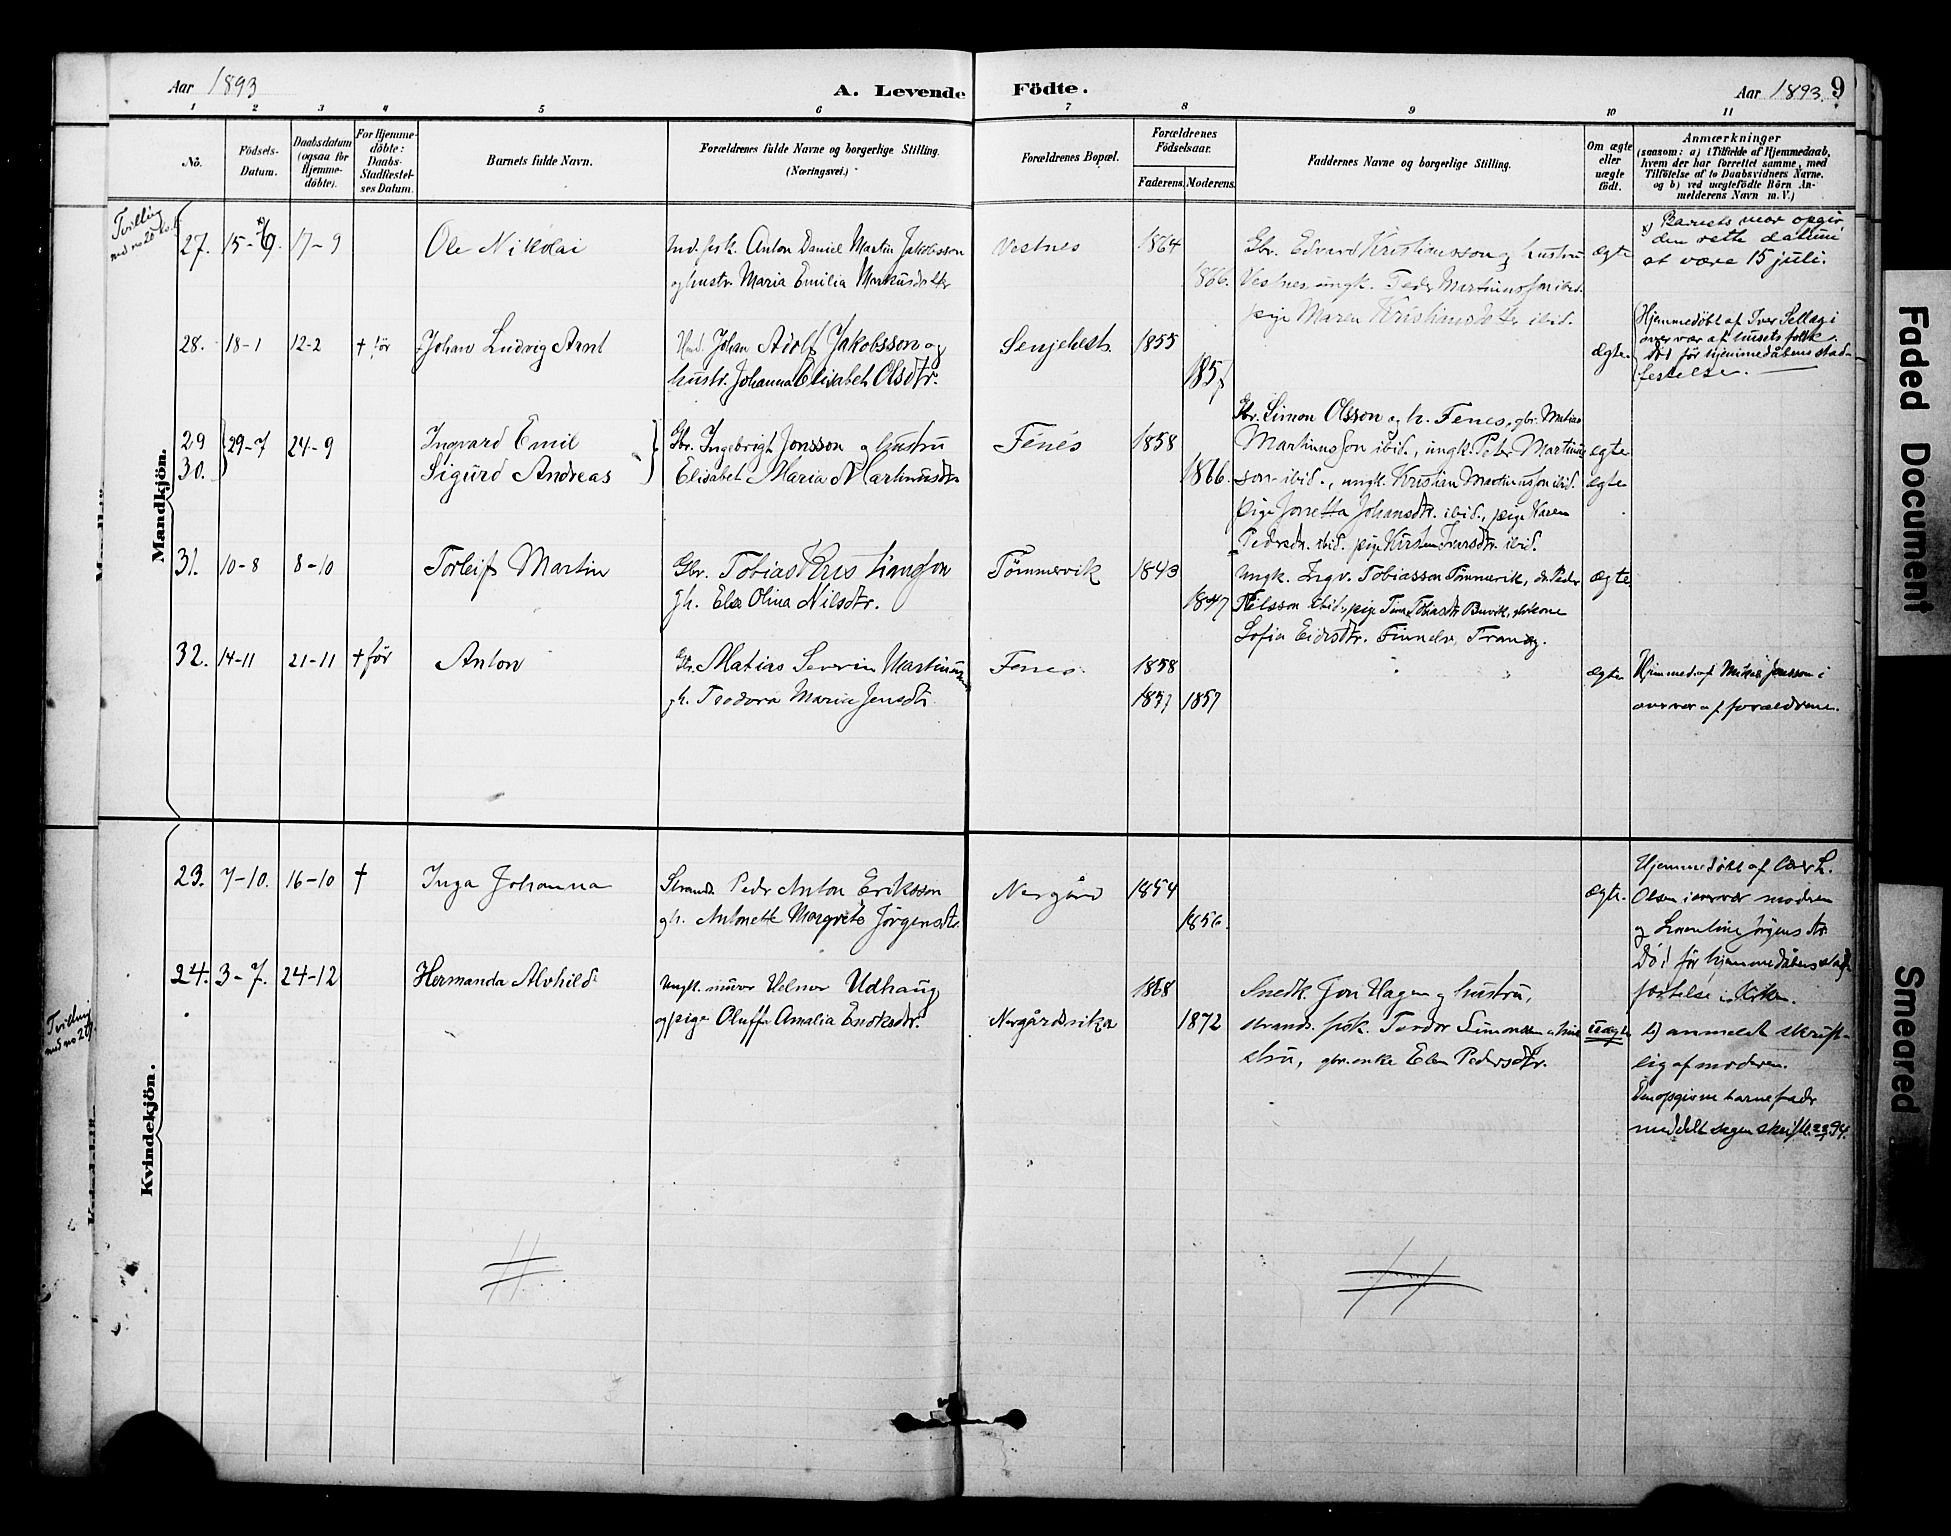 Aar 1893
A. Levende Födte.
Aar 1893. 9
1 2 3 4 5 6 7 8 9 10 11
No.
Födsels-Datum.
Daabsdatum (ogsaa for Hjemme-döbte).
For Hjemme-döbte: Daabs-Stadfæstel-ses Datum.
Barnets fulde Navn.
Forældrenes fulde Navne og borgerlige Stilling. (Næringsvei.)
Forældrenes Bopæl.
Forældrenes Födselsaar.
Faderens. Moderens.
Faddernes Navne og borgerlige Stilling.
Om ægte eller uægte födt.
Anmærkninger
(saasom: a) i Tilfælde af Hjemmedaab,
hvem der har forrettet samme, med
Tilföielse af to Daabsvidners Navne.
og b) ved uægtefödte Börn An-
melderens Navn m. V.)
Mandkjön.
Tvilling
med no 25
27. 15-9. 17-9 Ole Nikolai
Ind. fisk. Anton Daniel Martin Jakobsson
og hustr. Maria Emilia Markusdatter
Vestnes 1864
1866.
Gbr. Edvard Kristiansson og hustru
Vestnes, ungk. Peder Martinussen ibid.
pige Maren Kristiansdatter ibid.
ægte
x) Barnets mor opgir
den rette datum
at være 15 juli.
28. 18-1 12-2 † før Johan Ludvig Arnt
Johan Adolf Jakobsson og
hustr. Johanna Elisabet Olsdtr.
Senjehest. 1855
1857
ægte
Hjemmedøbt af Iver Sellag i
overvær af husets folk.
Død før hjemmedåbens stad-
festelse.
29 30. 29-7 24-9
Ingvard Emil
Sigurd Andreas
Gbr. Ingebrigt Jonsson og hustru
Elisabet Maria Martinusdtr
Fenes 1858
1866.
Gbr. Simon Olsson og h. Fenes, gbr. Matias
Martinusson ibid., ungk. Peter Martinus
son ibid., ungk. Kristian Martinusson ibid.
pige Jonetta Johansdtr. ibid., pige Karen
Pedersdtr. ibid. pige Kirsten Ivarsdtr. ibid.
ægte
ægte
31. 10-8 8-10 Torleif Martin
Gbr. Tobias Kristiansson
gh. Else Olina Nilsdtr.
Tømmervik 1843
1847
Ungk. Ingv. Tobiasson Tømmervik, do. Peder
Nilsson ibid., pige Tina Tobiasdtr Buvik, gbrkone
Sofia Eidisdtr. Finnelv, Tranøy.
ægte
32. 14-11 21-11 † før Anton
Gbr. Matias Severin Martinusson
gh. Teodora Maria Jensdtr
Fenes. 1858
1857 1857
ægte
Hjemmed. af Mikal Jensson i
overvær af forældrene.
Kvindekjön.
23. 7-10. 16-10 † Inga Johanna
Strands. Peder Anton Eriksson
gh. Antonette Margrete Jørgensdtr.
Nergård 1854
1856.
ægte.
Hjemmedøbt af L.
Olsen i overvær moderen
og Jørgensdtr.
Død før hjemmedåbens stad-
festelse i kirken.
Tvilling
med no 27
24. 3-7. 24-12 Hermanda Alvhild
Ungk. murer Helmer Udhaug
og pige Oluffa Amalia Enoksdtr.
Nergårdsvika 1868
1872
Snedk. Jon Hagen og hustru,
strands. fisk. Teodor Simonssen og hu-
stru, gbr.enke Elen Pedersdtr.
uægte
b) anmeldt skrift-
lig af moderen.
Den opgivne barnefader
meddelt sagen skriftl. 94.
Faded Document
Smeared